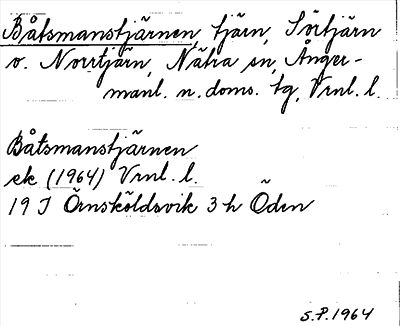 Båtsmanstjärnen, tjärn, Sörtjärn
o. Norrtjärn, Nätra sn, Ånger-
manl. n. doms. tg, Vrnl. l.
Båtsmanstjärnen
ek (1964) Vrnl. l.
19 J Örnsköldsvik 3 h Öden
S.P. 1964